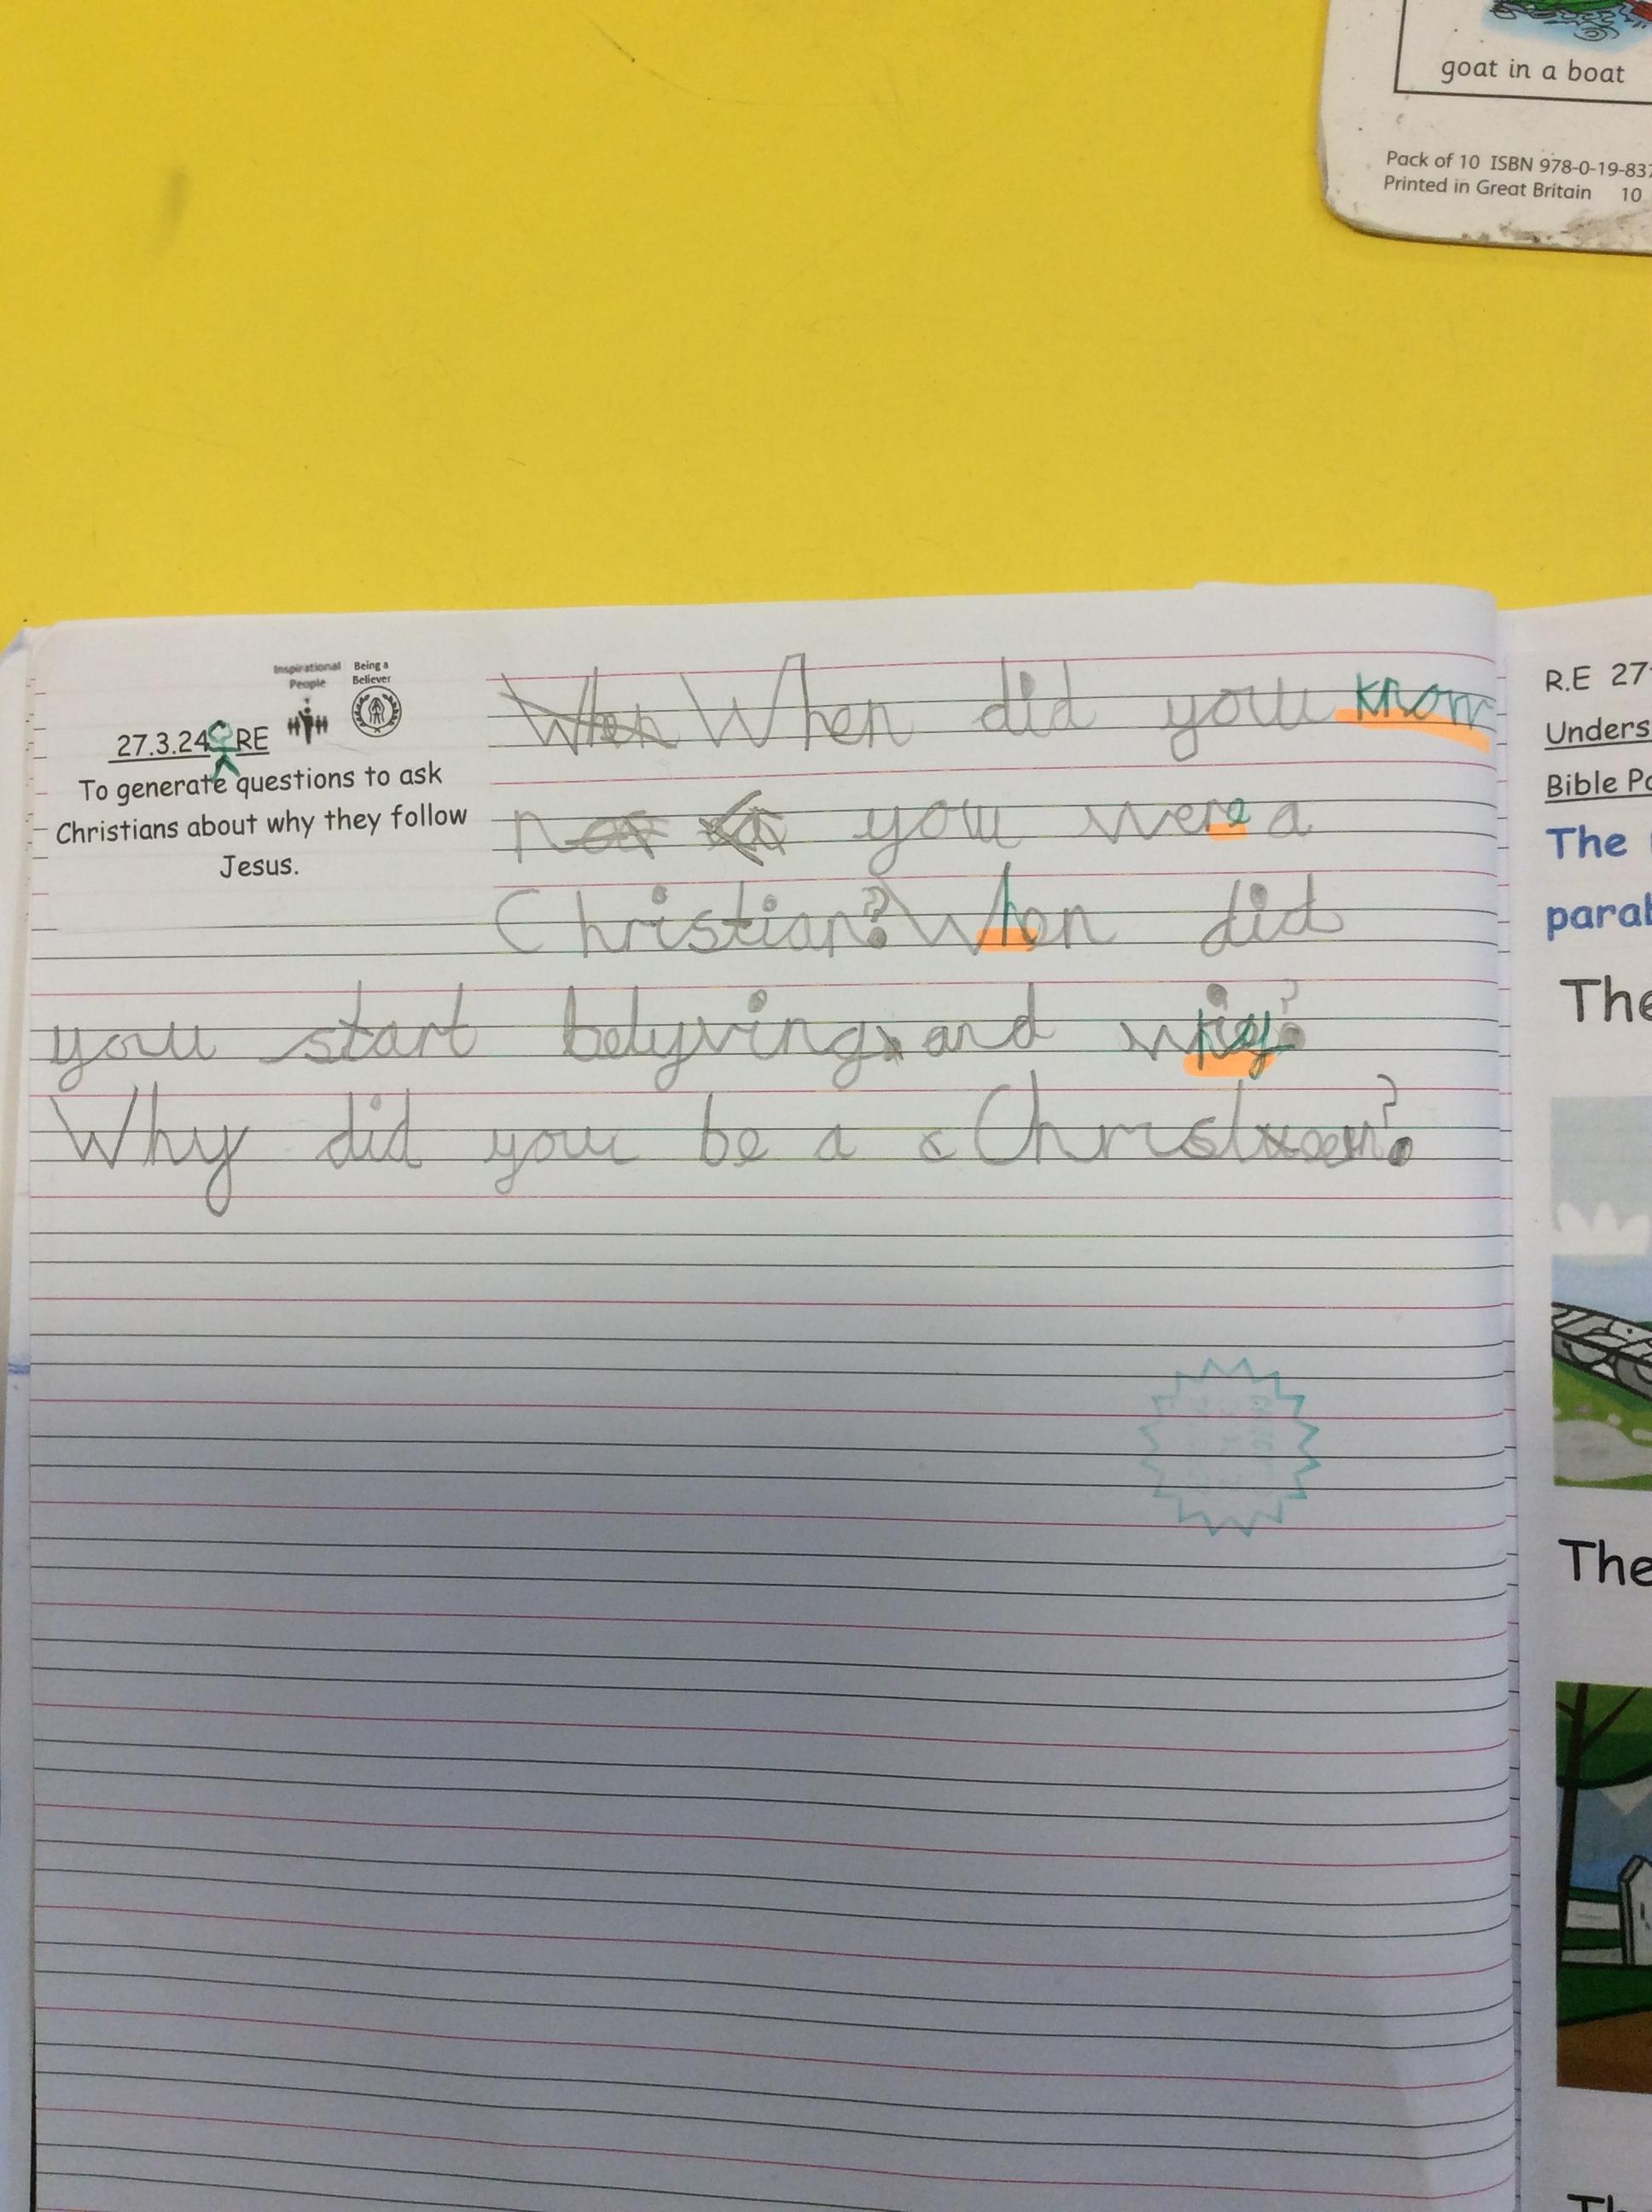 goat in a boat
Pack of 10 ISBN 978-0-19-837
Printed in Great Britain 10
Inspirational People
Being a Believer
27.3.24 RE
To generate questions to ask
Christians about why they follow
Jesus.
When When did you know
you were a
Christian? When did
you start belyving and why?
Why did you be a c Christian?
R.E 27
Unders
Bible Pa
The
parab
The
The